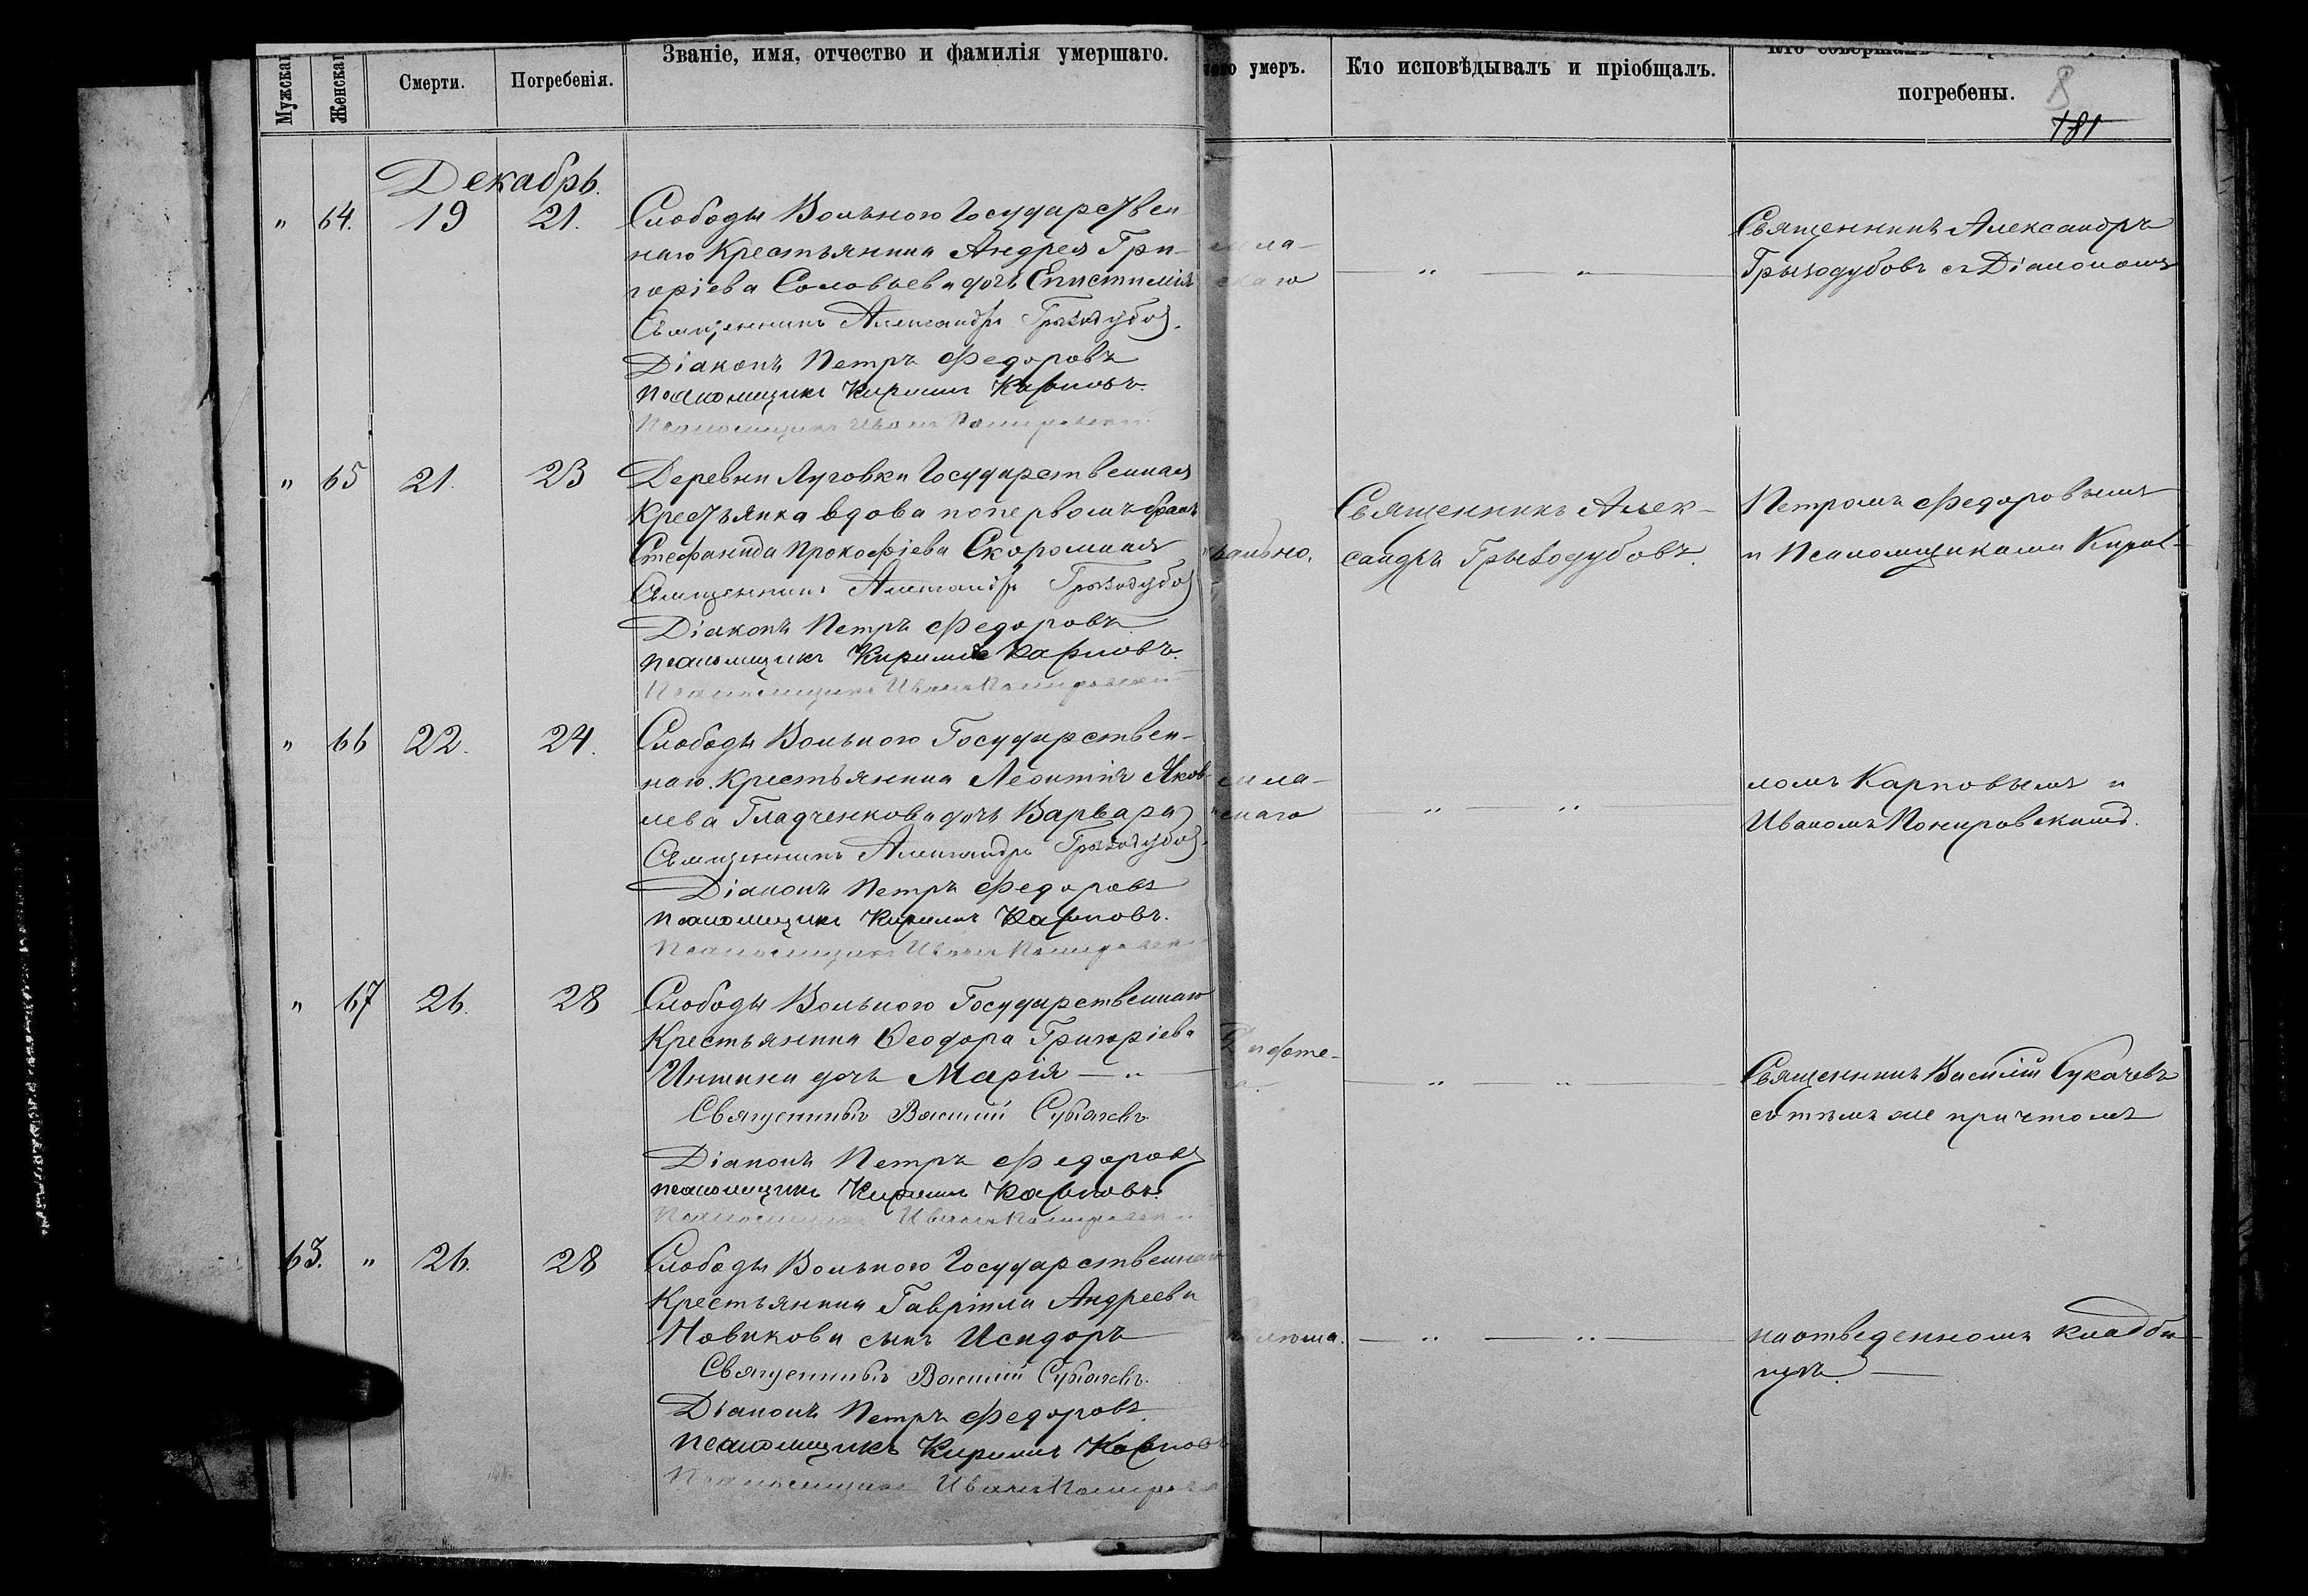 Мужскаг
Женскаг
Смерти.
Погребенія.
Званіе, имя, отчество и фамилія умершаго.
умеръ.
Кто исповѣдывалъ и пріобщалъ.
погребены.
8
181
Декабрь.
" 64. 19 21.
Слободы Вольного Государствен-
наго Крестьянина Андрея Гри-
горіева Соловьева дочь Епистимія
Священникъ Александръ Грызодубов
Діаконъ Петръ Федоровъ
Псаломщикъ Кириллъ Карповъ.
Псаломщикъ Иванъ
Священникъ Александръ
Грызодубовъ съ Діакономъ
" 65 21. 23
Деревни Луговки Государственная
Крестьянка вдова по первомъ бракѣ
Стефанида Прокофіева Скоромная
Священникъ Александръ Грызодубов
Діаконъ Петръ Федоровъ
Псаломщикъ Кириллъ Карповъ.
Псаломщикъ Иванъ
Священникъ Алек-
сандръ Грызодубовъ.
Петромъ Федоровымъ
и Псаломщиками Кирил-
" 66 22. 24.
Слободы Вольного Государствен-
наго Крестьянина Леонтія Яков-
лева Гладченкова дочь Варвара
Священникъ Александръ Грызодубов
Діаконъ Петръ Федоровъ
Псаломщикъ Кириллъ Карповъ.
Псаломщикъ Иванъ
ломъ Карповымъ и
Иваномъ
" 67 26. 28
Слободы Вольного Государственнаго
Крестьянина Ѳеодора Григоріева
дочь Марія — " —
Священникъ Василий Сукачевъ
Діаконъ Петръ Федоровъ
Псаломщикъ Кириллъ Карповъ.
Псаломщикъ Иванъ
Священникъ Василій Сукачевъ
съ тѣмъ же причтомъ
63. " 26. 28
Слободы Вольного Государственнаго
Крестьянина Гавріила Андреева
Новикова сынъ Исидоръ
Священникъ Василий Сукачевъ.
Діаконъ Петръ Федоровъ.
Псаломщикъ Кириллъ Карповъ
Псаломщикъ Иванъ
на отведенномъ кладби-
щѣ. —